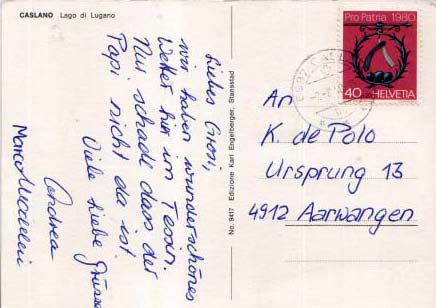 CASLANO Lago di Lugano
Liebes Grosi,
wir haben wunderschönes
Wetter hier im Tessin.
Nur schade dass der
Papi nicht da ist.
Viele liebe Grüsse
Andrea
Marco
No. 9417 Edizione Karl Engelberger, Stansstad
Pro Patria 1980
40 HELVETIA
An
K. de Polo
Ursprung 13
4912 Aarwangen